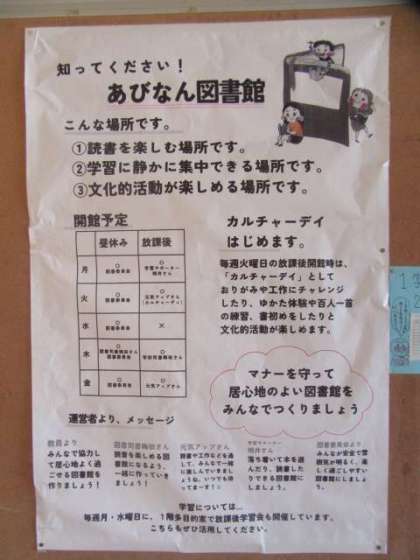 知ってください！
あびなん図書館
こんな場所です。
①読書を楽しむ場所です。
②学習に静かに集中できる場所です。
③文化的活動が楽しめる場所です。
開館予定
昼休み 放課後
月 ○ 図書委員会 ○ 学習サポーター
火 ○ 図書委員会 ○ 元気アップさん (カルチャーデイ)
水 ○ 図書委員会 ×
木 ○ 図書委員会 ○
金 ○ 図書委員会 ○ 元気アップさん
カルチャーデイ
はじめます。
毎週火曜日の放課後開館時は、
「カルチャーデイ」として
おりがみや工作にチャレンジ
したり、ゆかた体験や百人一首
の練習、書初めをしたりと
文化的活動が楽しめます。
マナーを守って
居心地のよい図書館を
みんなでつくりましょう
運営者より、メッセージ
教員より
みんなで協力し
て居心地よく過
ごせる図書館を
作りましょう！
読書を楽しめる
図書館になるよう、
一緒に作っていき
ましょう！
元気アップさん
読書や工作などを通
して、みんなで一緒
に楽しんでいきまし
ょうね。いつでも待
ってまーす！
学習サポーター
落ち着いて本を選
んだり、読書した
りできる図書館に
しましょう。
図書委員会より
みんなが安全で雰
囲気が明るく、楽
しく過ごしやすい
図書館にしましょ
う。
学習については…
毎週月・水曜日に、1階多目的室で放課後学習会も開催しています。
こちらもぜひ活用してください。